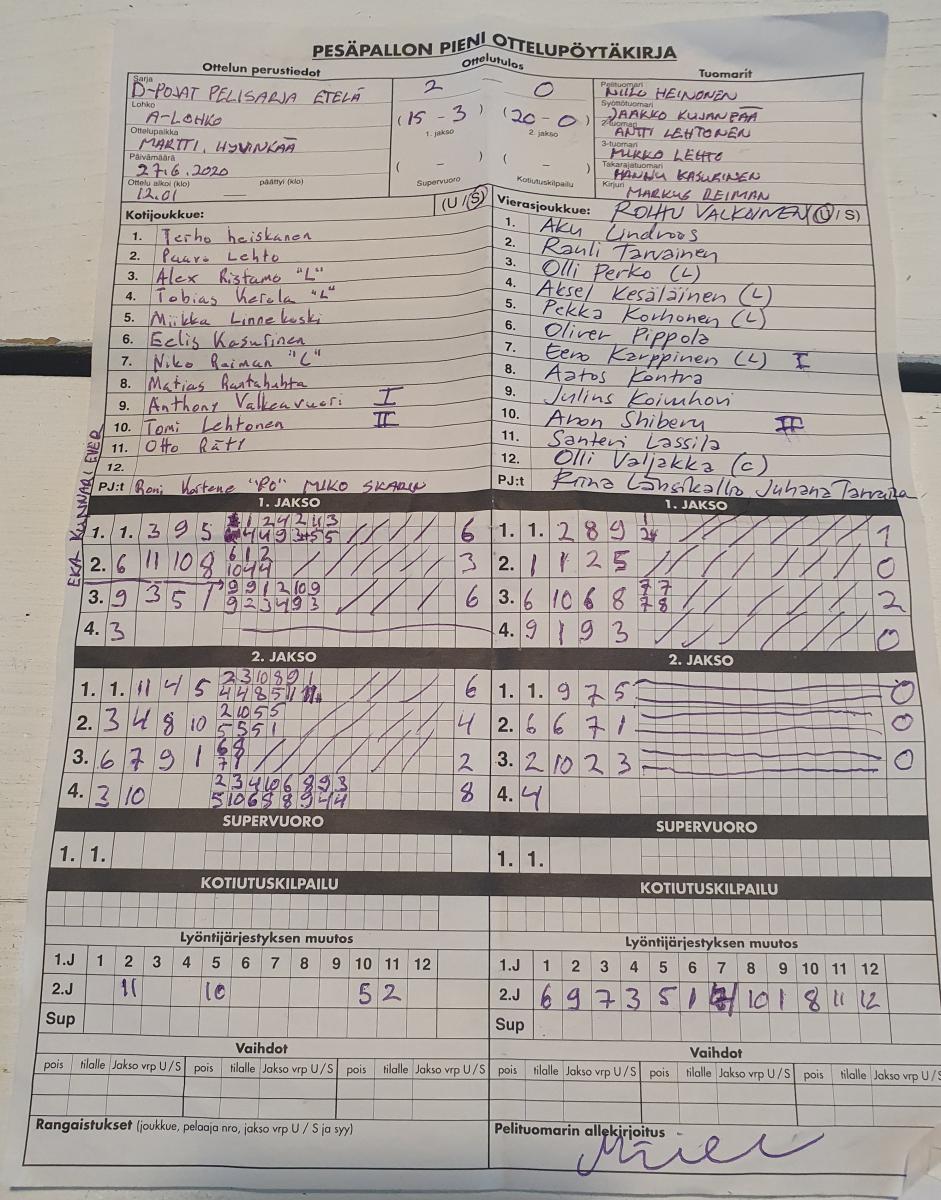 PESÄPALLON PIENI OTTELUPÖYTÄKIRJA
Ottelun perustiedot
Ottelutulos
Tuomarit
Sarja
D-POJAT PELISARJA ETELÄ
Lohko
A-LOHKO
Ottelupaikka
MARTTI, HYVINKÄÄ
Päivämäärä
27.6.2020
Ottelu alkoi (klo) päättyi (klo)
12.01
2 — 0
(15 - 3) (20 - 0)
1. jakso 2. jakso
( - ) ( - )
Supervuoro Kotiutuskilpailu
Pelituomari
NIILO HEINONEN
Syöttötuomari
JAAKKO KUJANPÄÄ
2-tuomari
ANTTI LEHTONEN
3-tuomari
MIKKO LEHTO
Takarajatuomari
HANNU KASURINEN
Kirjuri
MARKUS REIMAN
Kotijoukkue: (U / S)
1. Terho heiskanen
2. Paavo Lehto
3. Alex Ristamo "L"
4. Tobias Kerola "L"
5. Miikka Linnekoski
6. Eelis Kasurinen
7. Niko Raiman "L"
8. Matias Rantahuhta
9. Anthony Valkeavuori I
10. Tomi Lehtonen II
11. Otto Räti
12.
PJ:t Roni Kortene "PO" MIKO SKARIN
Vierasjoukkue: ROIHU VALKOINEN (U / S)
1. Aku Lindroos
2. Rauli Tarvainen
3. Olli Perko (L)
4. Aksel Kesäläinen (L)
5. Pekka Korhonen (L)
6. Oliver Pippola
7. Eero Karppinen (L) I
8. Aatos Kontra
9. Julius Koivuhovi
10. Aron Shiberu II
11. Santeri Lassila
12. Olli Valjakka (c)
PJ:t Riina Länsikallio, Juhana Tarvainen
EKA KUNNARI EVER
1. JAKSO
1. 1. 3 9 5 6
2. 6 11 10 8 6 1 2 3
10 4 4
3. 9 3 5 1 9 9 1 2 10 9 6
9 2 3 4 9 3
4. 3
2. JAKSO
1. 1. 11 4 5 2 3 10 8 9 1 6
4 4 8 5 1 11
2. 3 4 8 10 2 10 5 5 4
5 5 5 1
3. 6 7 9 1 6 8 2
7 1
4. 3 10 2 3 4 10 6 8 9 3 8
5 10 6 8 8 9 4 4
SUPERVUORO
1. 1.
KOTIUTUSKILPAILU
1. JAKSO
1. 1. 2 8 9 1 1
2. 1 1 2 5 0
3. 6 10 6 8 7 7 2
7 8
4. 9 1 9 3 0
2. JAKSO
1. 1. 9 7 5 0
2. 6 6 7 1 0
3. 2 10 2 3 0
4. 4
SUPERVUORO
1. 1.
KOTIUTUSKILPAILU
Lyöntijärjestyksen muutos
1.J 1 2 3 4 5 6 7 8 9 10 11 12
2.J 11 10 5 2
Sup
Vaihdot
pois tilalle Jakso vrp U / S pois tilalle Jakso vrp U / S pois tilalle Jakso vrp U / S
Rangaistukset (joukkue, pelaaja nro, jakso vrp U / S ja syy)
Lyöntijärjestyksen muutos
1.J 1 2 3 4 5 6 7 8 9 10 11 12
2.J 6 9 7 3 5 1 10 1 8 11 12
Sup
Vaihdot
pois tilalle Jakso vrp U / S pois tilalle Jakso vrp U / S pois tilalle Jakso vrp U / S
Pelituomarin allekirjoitus